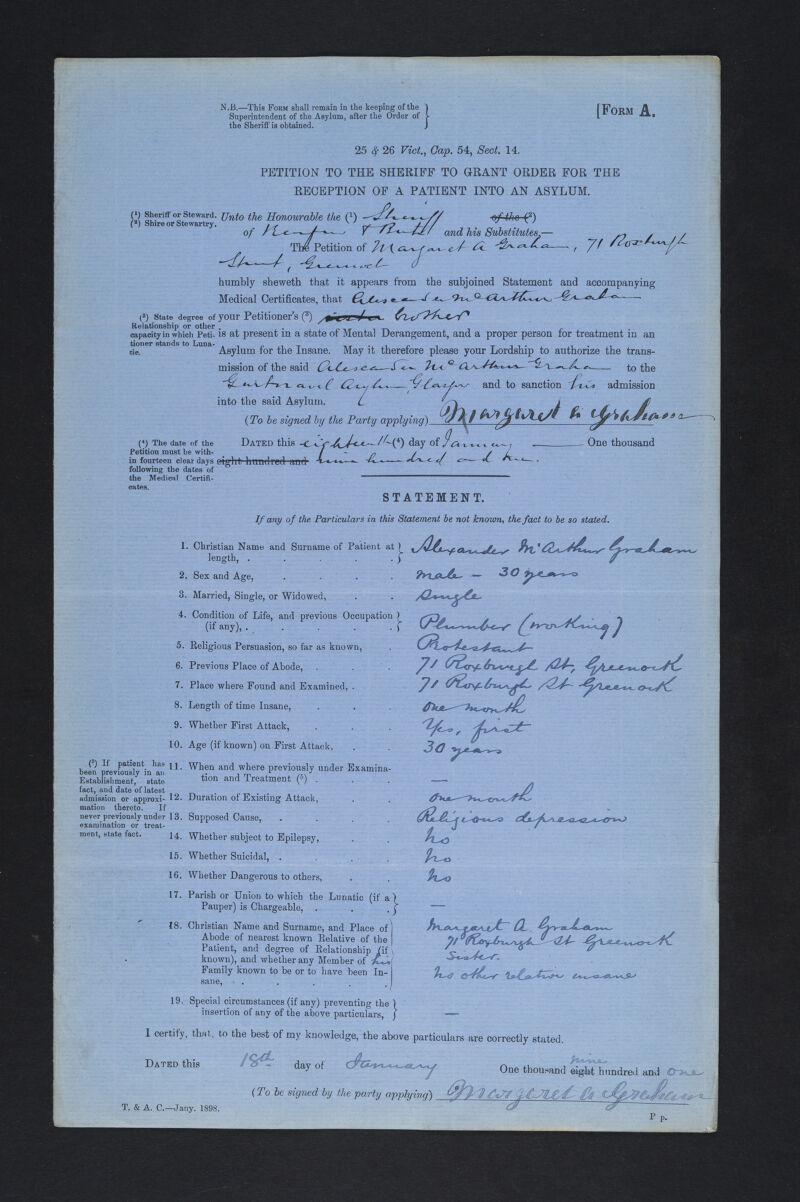 N.B.—This Form shall remain in the keeping of the
Superintendent of the Asylum, after the Order of
the Sheriff is obtained.
[Form A.
25 & 26 Vict., Cap. 54, Sect. 14.
PETITION TO THE SHERIFF TO GRANT ORDER FOR THE
RECEPTION OF A PATIENT INTO AN ASYLUM.
(¹) Sheriff or Steward.
(²) Shire or Stewartry.
Unto the Honourable the (¹) Sheriff of the (²)
of Renfrew & Bute and his Substitutes,—
The Petition of Margaret A Graham, 71 Roxburgh
Street, Greenock
humbly sheweth that it appears from the subjoined Statement and accompanying
Medical Certificates, that Alexander McArthur Graham
(³) State degree of
Relationship or other
capacity in which Peti-
tioner stands to Luna-
tic.
your Petitioner's (³) brother
is at present in a state of Mental Derangement, and a proper person for treatment in an
Asylum for the Insane. May it therefore please your Lordship to authorize the trans-
mission of the said Alexander McArthur Graham to the
Gartnavel Asylum Glasgow and to sanction his admission
into the said Asylum.
(To be signed by the Party applying) Margaret A Graham
(⁴) The date of the
Petition must be with-
in fourteen clear days
following the dates of
the Medical Certifi-
cates.
Dated this eighteenth (⁴) day of January One thousand
eight hundred and nine hundred and one.
STATEMENT.
If any of the Particulars in this Statement be not known, the fact to be so stated.
1. Christian Name and Surname of Patient at
length, . Alexander McArthur Graham
2. Sex and Age, male — 30 years
3. Married, Single, or Widowed, Single
4. Condition of Life, and previous Occupation
(if any), . Plumber (working)
5. Religious Persuasion, so far as known, Protestant
6. Previous Place of Abode, 71 Roxburgh St, Greenock
7. Place where Found and Examined, . 71 Roxburgh St Greenock
8. Length of time Insane, one month
9. Whether First Attack, Yes, first
10. Age (if known) on First Attack, 30 years
(⁵) If patient has
been previously in an
Establishment, state
fact, and date of latest
admission or approxi-
mation thereto. If
never previously under
examination or treat-
ment, state fact.
11. When and where previously under Examina-
tion and Treatment (⁵) —
12. Duration of Existing Attack, one month
13. Supposed Cause, Religious depression
14. Whether subject to Epilepsy, no
15. Whether Suicidal, no
16. Whether Dangerous to others, no
17. Parish or Union to which the Lunatic (if a
Pauper) is Chargeable, —
18. Christian Name and Surname, and Place of
Abode of nearest known Relative of the
Patient, and degree of Relationship (if
known), and whether any Member of his
Family known to be or to have been In-
sane,
Margaret A. Graham
71 Roxburgh St Greenock
Sister.
no other relative insane
19. Special circumstances (if any) preventing the
insertion of any of the above particulars, —
I certify, that, to the best of my knowledge, the above particulars are correctly stated.
Dated this 18th day of January One thousand eight nine hundred and one
(To be signed by the party applying) Margaret A Graham
T. & A. C.—Jany. 1898.
P p.